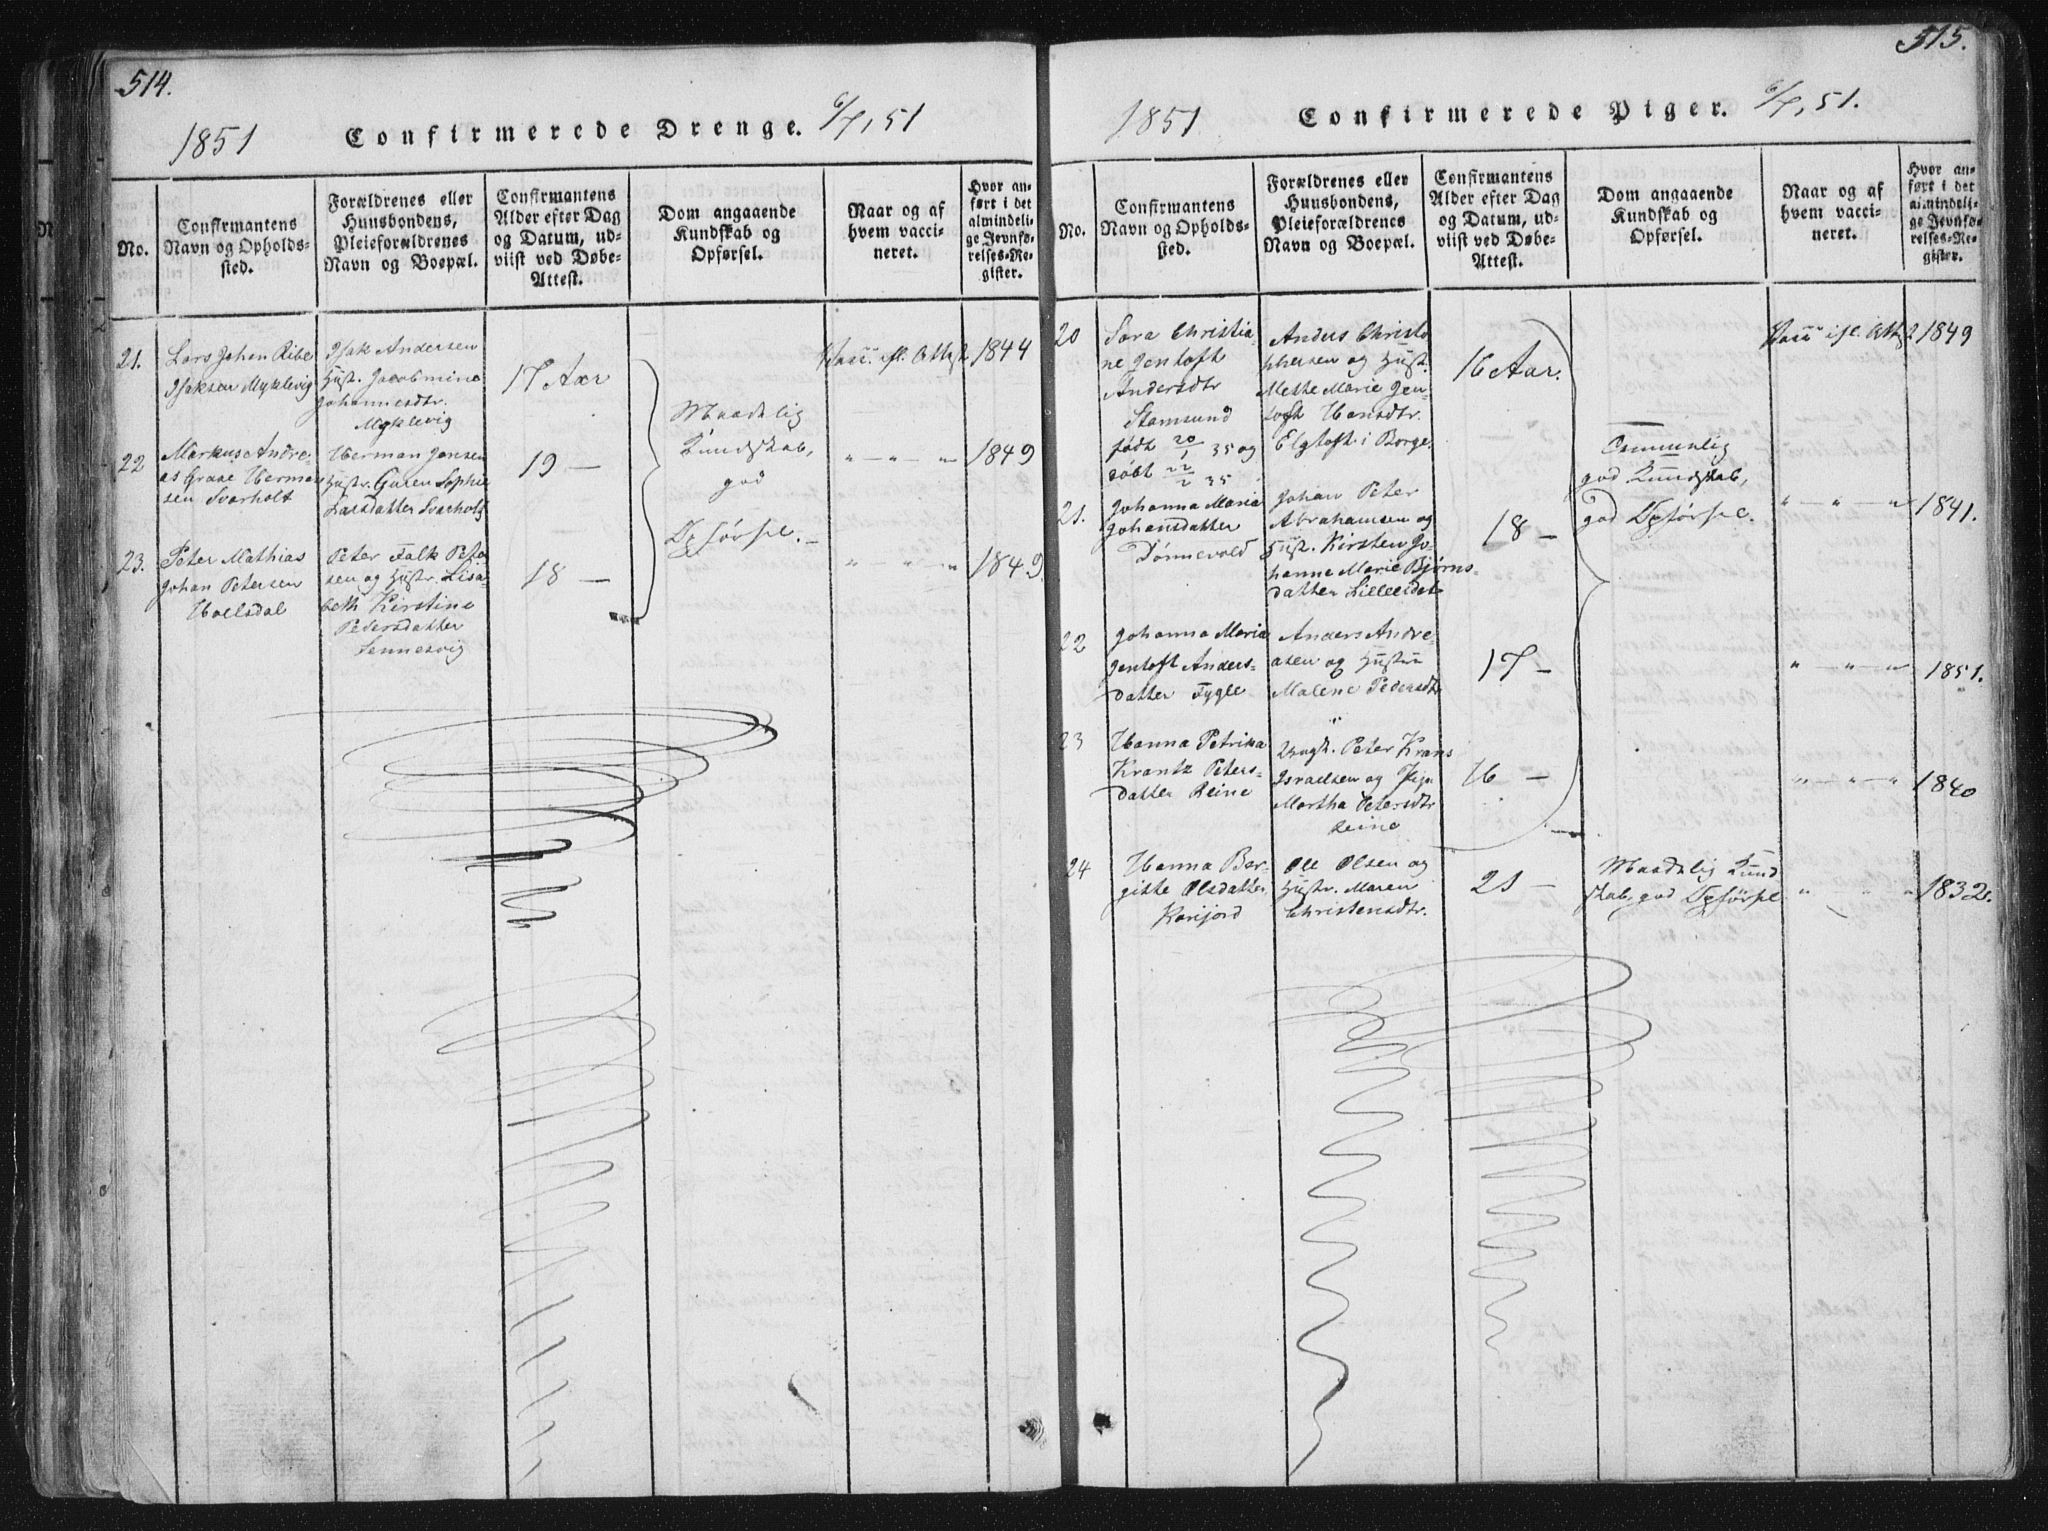 514.
1851
Confirmerede Drenge. 6/7, 51
No.
Confirmantens
Navn og Opholds-
sted.
Forældrenes eller
Huusbondens,
Pleieforældrenes
Navn og Boepæl.
Confirmantens
Alder efter Dag
og Datum, ud-
viist ved Døbe-
Attest.
Dom angaaende
Kundskab og
Opførsel.
Naar og af
hvem vacci-
neret.
Hvor an-
ført i det
almindeli-
ge Jevnfø-
relses-Re-
gister.
21.
Lars Johan Ribe
Isaksen Myklevig
Isak Andersen
Hust. Jacobmine
Johannesdtr.
Myklevig
17 Aar
Vacc. ifl. Attest
1844
22
Markus Andre-
as Graae Herman
sen Svarholt
Herman Jensen
Hustr. Guren Sophie
Larsdatter Svarholt
19 —
" — " — "
1849
23.
Peter Mathias
Johan Petersen
Holsdal
Peter Falk Peter
sen og Hustr. Lisa
beth Kirstine
Pedersdatter
Sennesvig
18 —
" — " — "
1849.
Maadelig
Kundskab,
god
Opførsel. —
515.
1851
Confirmerede Piger. 6/7, 51.
No.
Confirmantens
Navn og Opholds-
sted.
Forældrenes eller
Huusbondens,
Pleieforældrenes
Navn og Boepæl.
Confirmantens
Alder efter Dag
og Datum, ud-
viist ved Døbe-
Attest.
Dom angaaende
Kundskab og
Opførsel.
Naar og af
hvem vacci-
neret.
Hvor an-
ført i det
almindeli-
ge Jevnfø-
relses-Re-
gister.
20
Sara Christia-
ne Jentoft
Andersdtr
Stamsund
født 20/1 35 og
døbt 22/2 35
Anders Christo
phersen og Hust.
Mette Marie Jen-
toft Hansdtr.
Elgtoft i Borge.
16 Aar.
Vacc ifl. Attst
1849
21.
Johanna Maria
Johansdatter
Dønnevold
Johan Peter
Abrahamsen og
Hust. Kirsten Jo-
hanna Marie Bjørns
datter Lilleeidet
18 —
" — " — "
1841.
22
Johanna Maria
Jentoft Anders-
datter Fygle
Anders Andre-
asen og Hustru
Malene Pedersdtr
"
17 —
" — " — "
1851.
23
Hanna Petrika
Krantz Peters-
datter Reine
Ungk. Peter Krans
Israelsen og Pige
Martha Petersdtr
Reine
16 —
" — " — "
1840
Temmelig
god Kundskab,
god Opførsel.
24
Hanna Ber-
gitte Olsdatter
Ole Olsen og
Hustr. Maren
Christensdtr.
21 —
Maadelig Kund
skab, god Opførsel
" " "
1832.